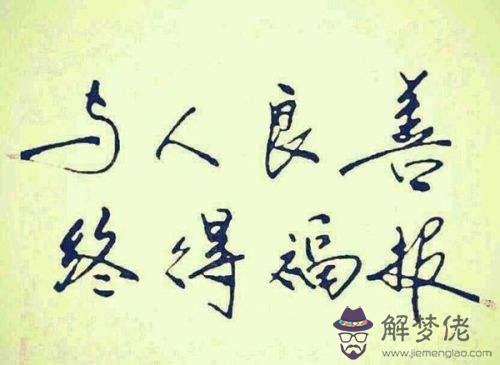 与人良善
终得福报
解梦佬
www.jiemenglao.com